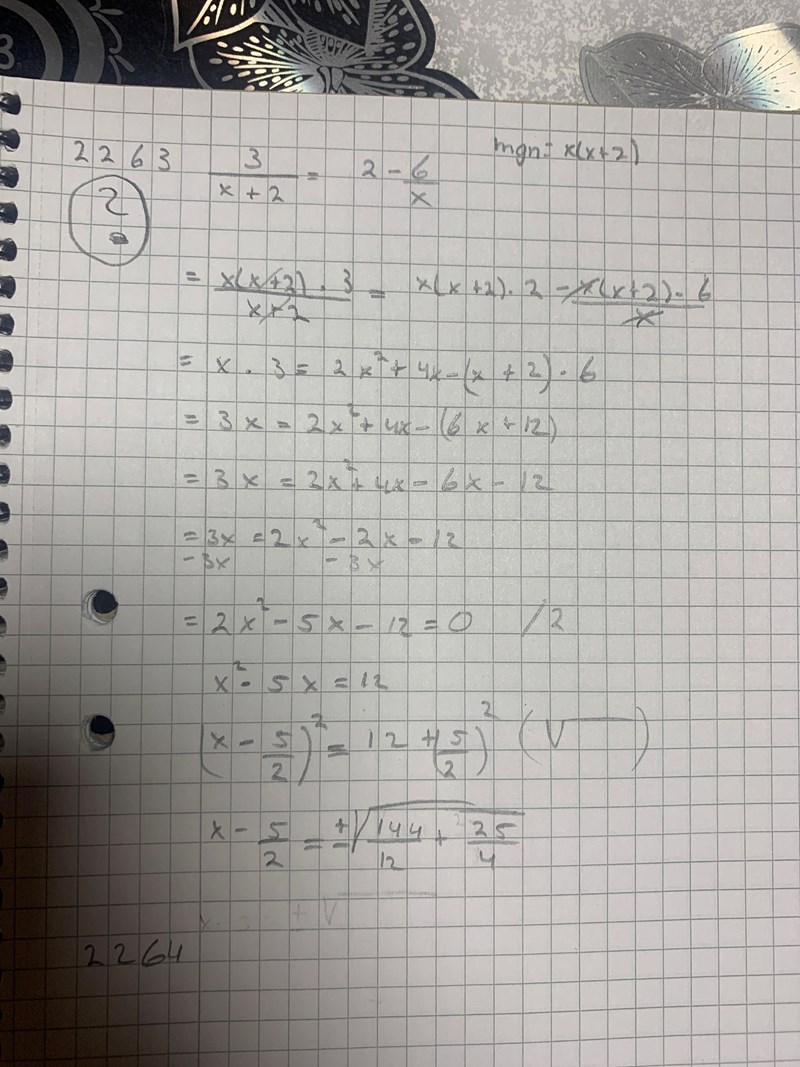 2263 3/(x+2) = 2 - 6/x mgn= x(x+2)
2
= x(x+2) · 3/(x+2) = x(x+2) · 2 - x(x+2) · 6/x
= x · 3 = 2x² + 4x - (x + 2) · 6
= 3x = 2x² + 4x - (6x + 12)
= 3x = 2x² + 4x - 6x - 12
= 3x = 2x² - 2x - 12
-3x -3x
= 2x² - 5x - 12 = 0 /2
x² - 5x = 12
(x - 5/2)² = 12 + (5/2)² (√)
x - 5/2 = ±√(144/12 + 25/4)
± √
2264